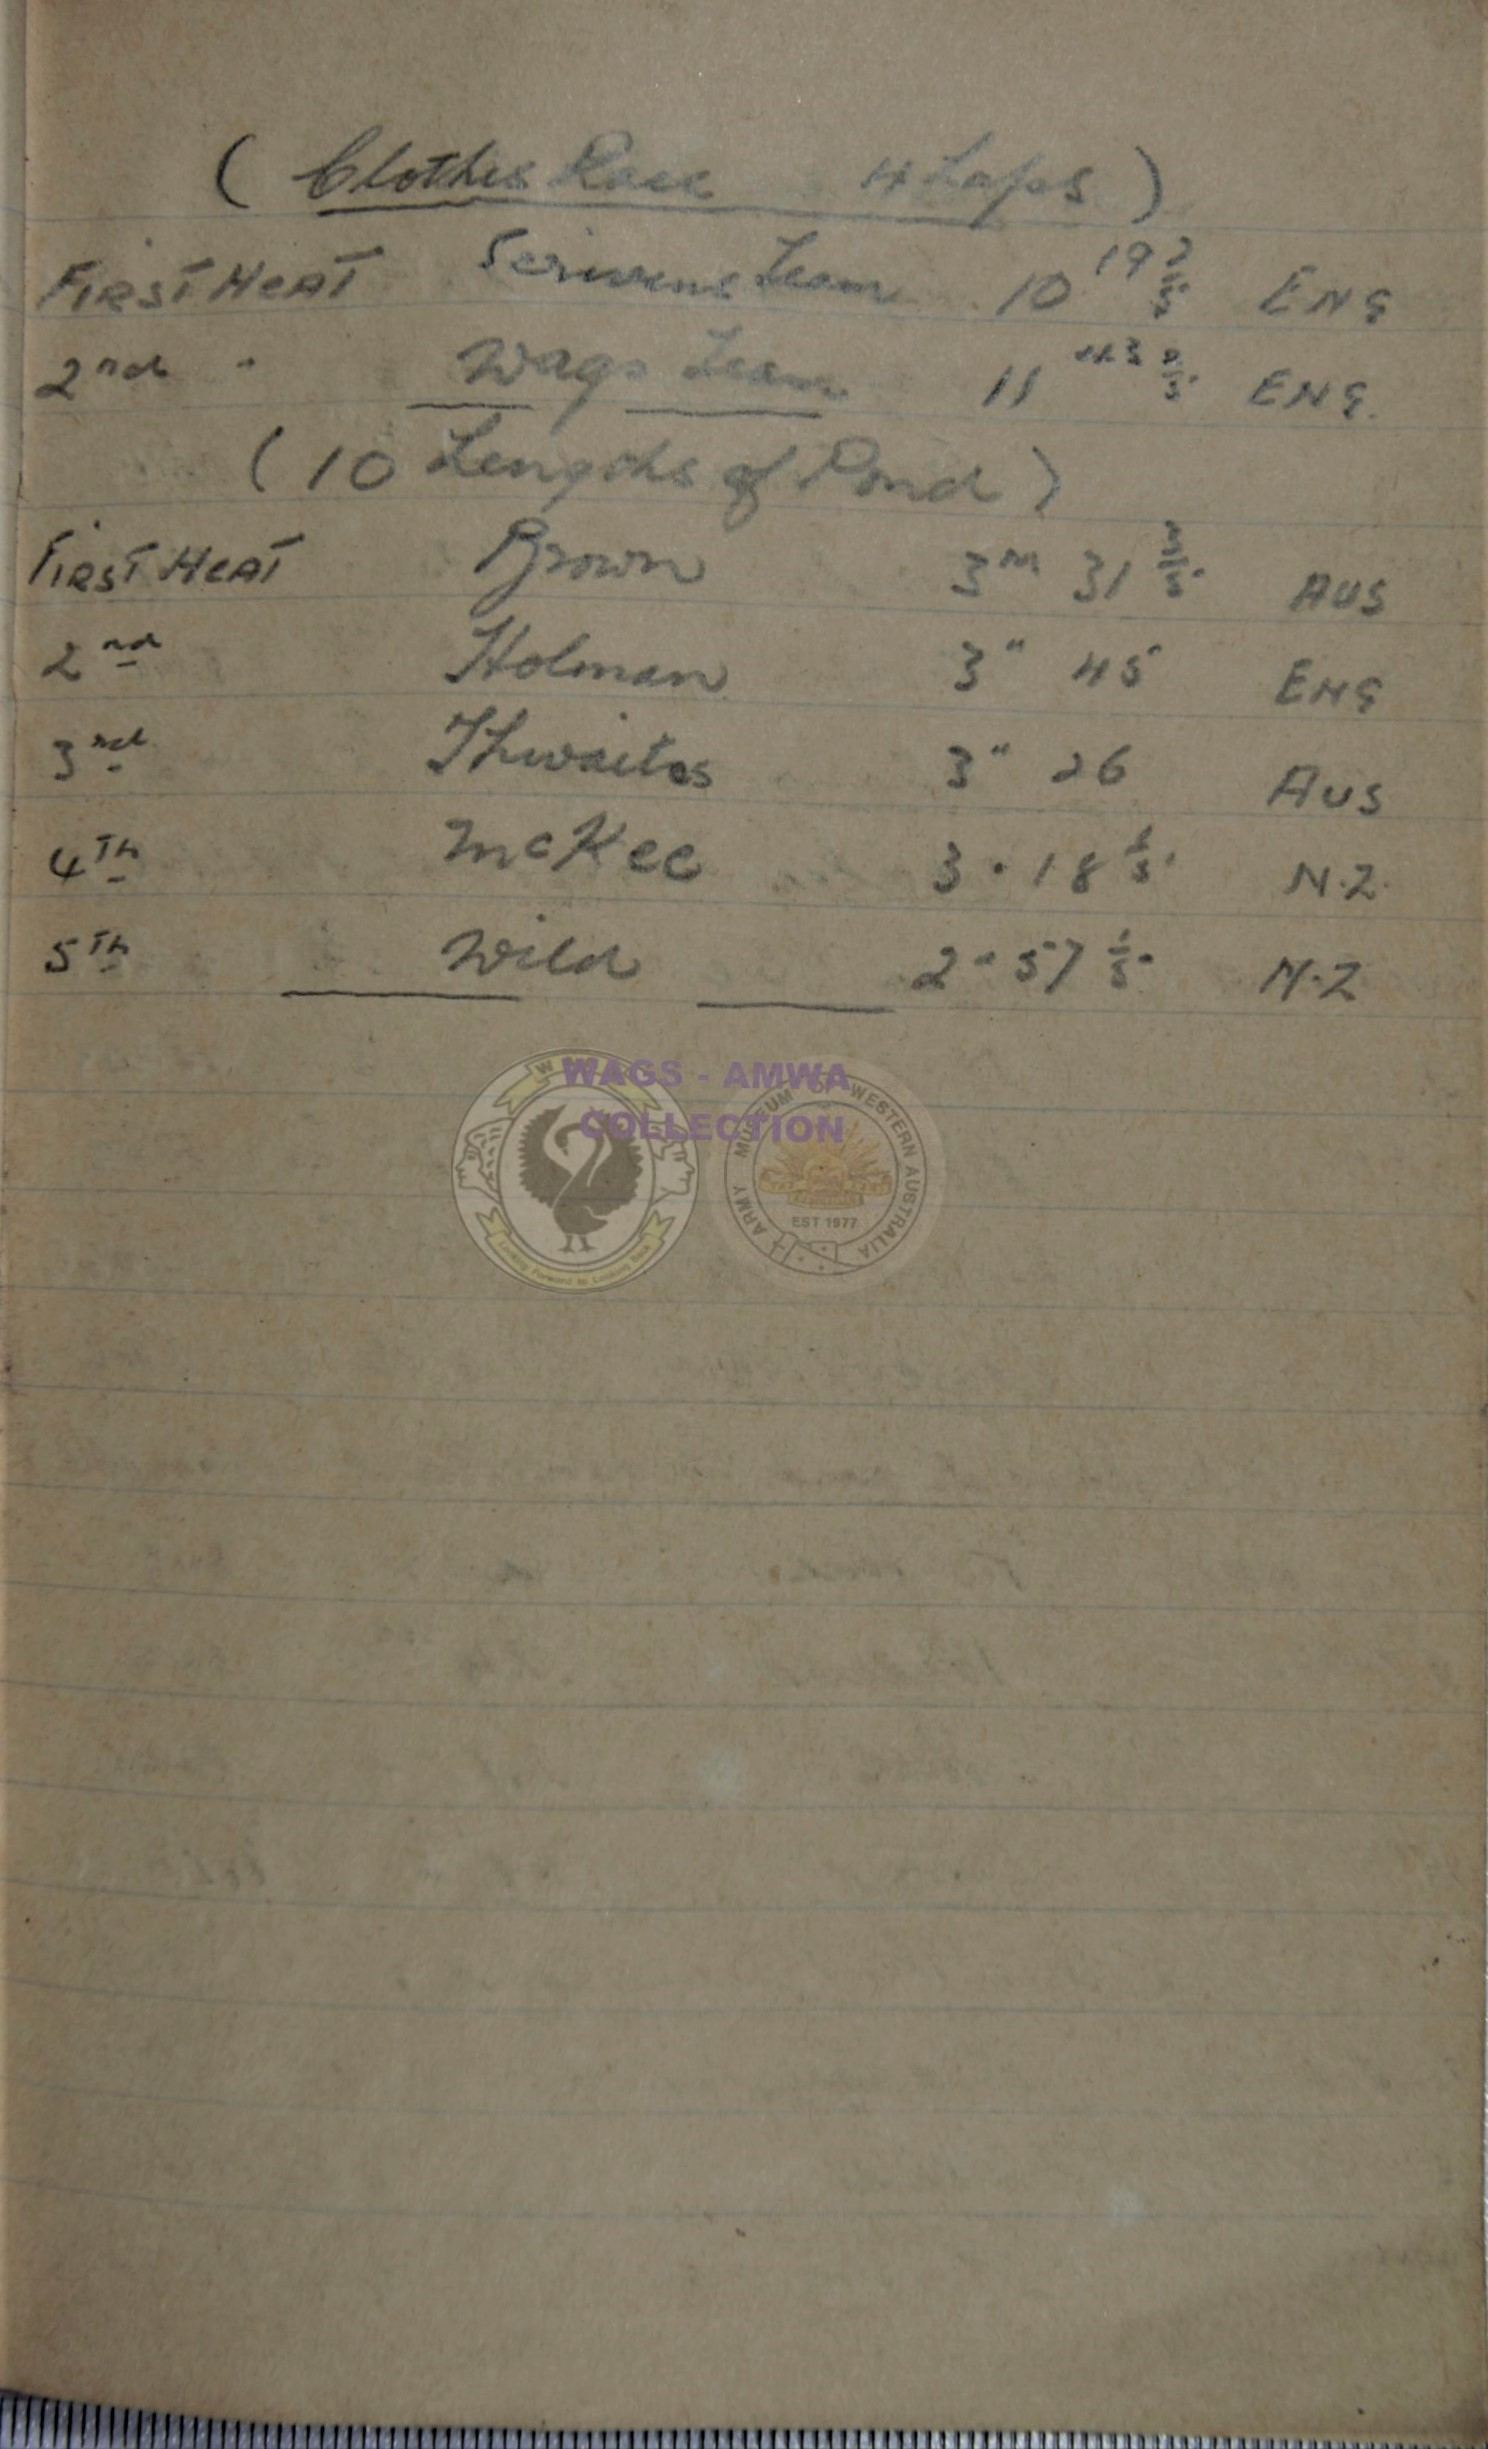 ( Clothes Race 4 Laps )
FIRST HEAT Scrivens Team 10 19 2/5 ENG
2nd " Wags Team 11 43 ENG.
( 10 Lengths of Pond )
FIRST HEAT Brown 3m 31 3/5 AUS
2nd Holman 3" 45 ENG
3rd Thwaites 3" 26 AUS
4TH McKee 3 . 18 1/5 N.Z.
5TH Wild 2" 57 1/5 N.Z
WAGS - AMWA
COLLECTION
ARMY MUSEUM OF WESTERN AUSTRALIA
EST 1977
Looking Forward to Looking Back